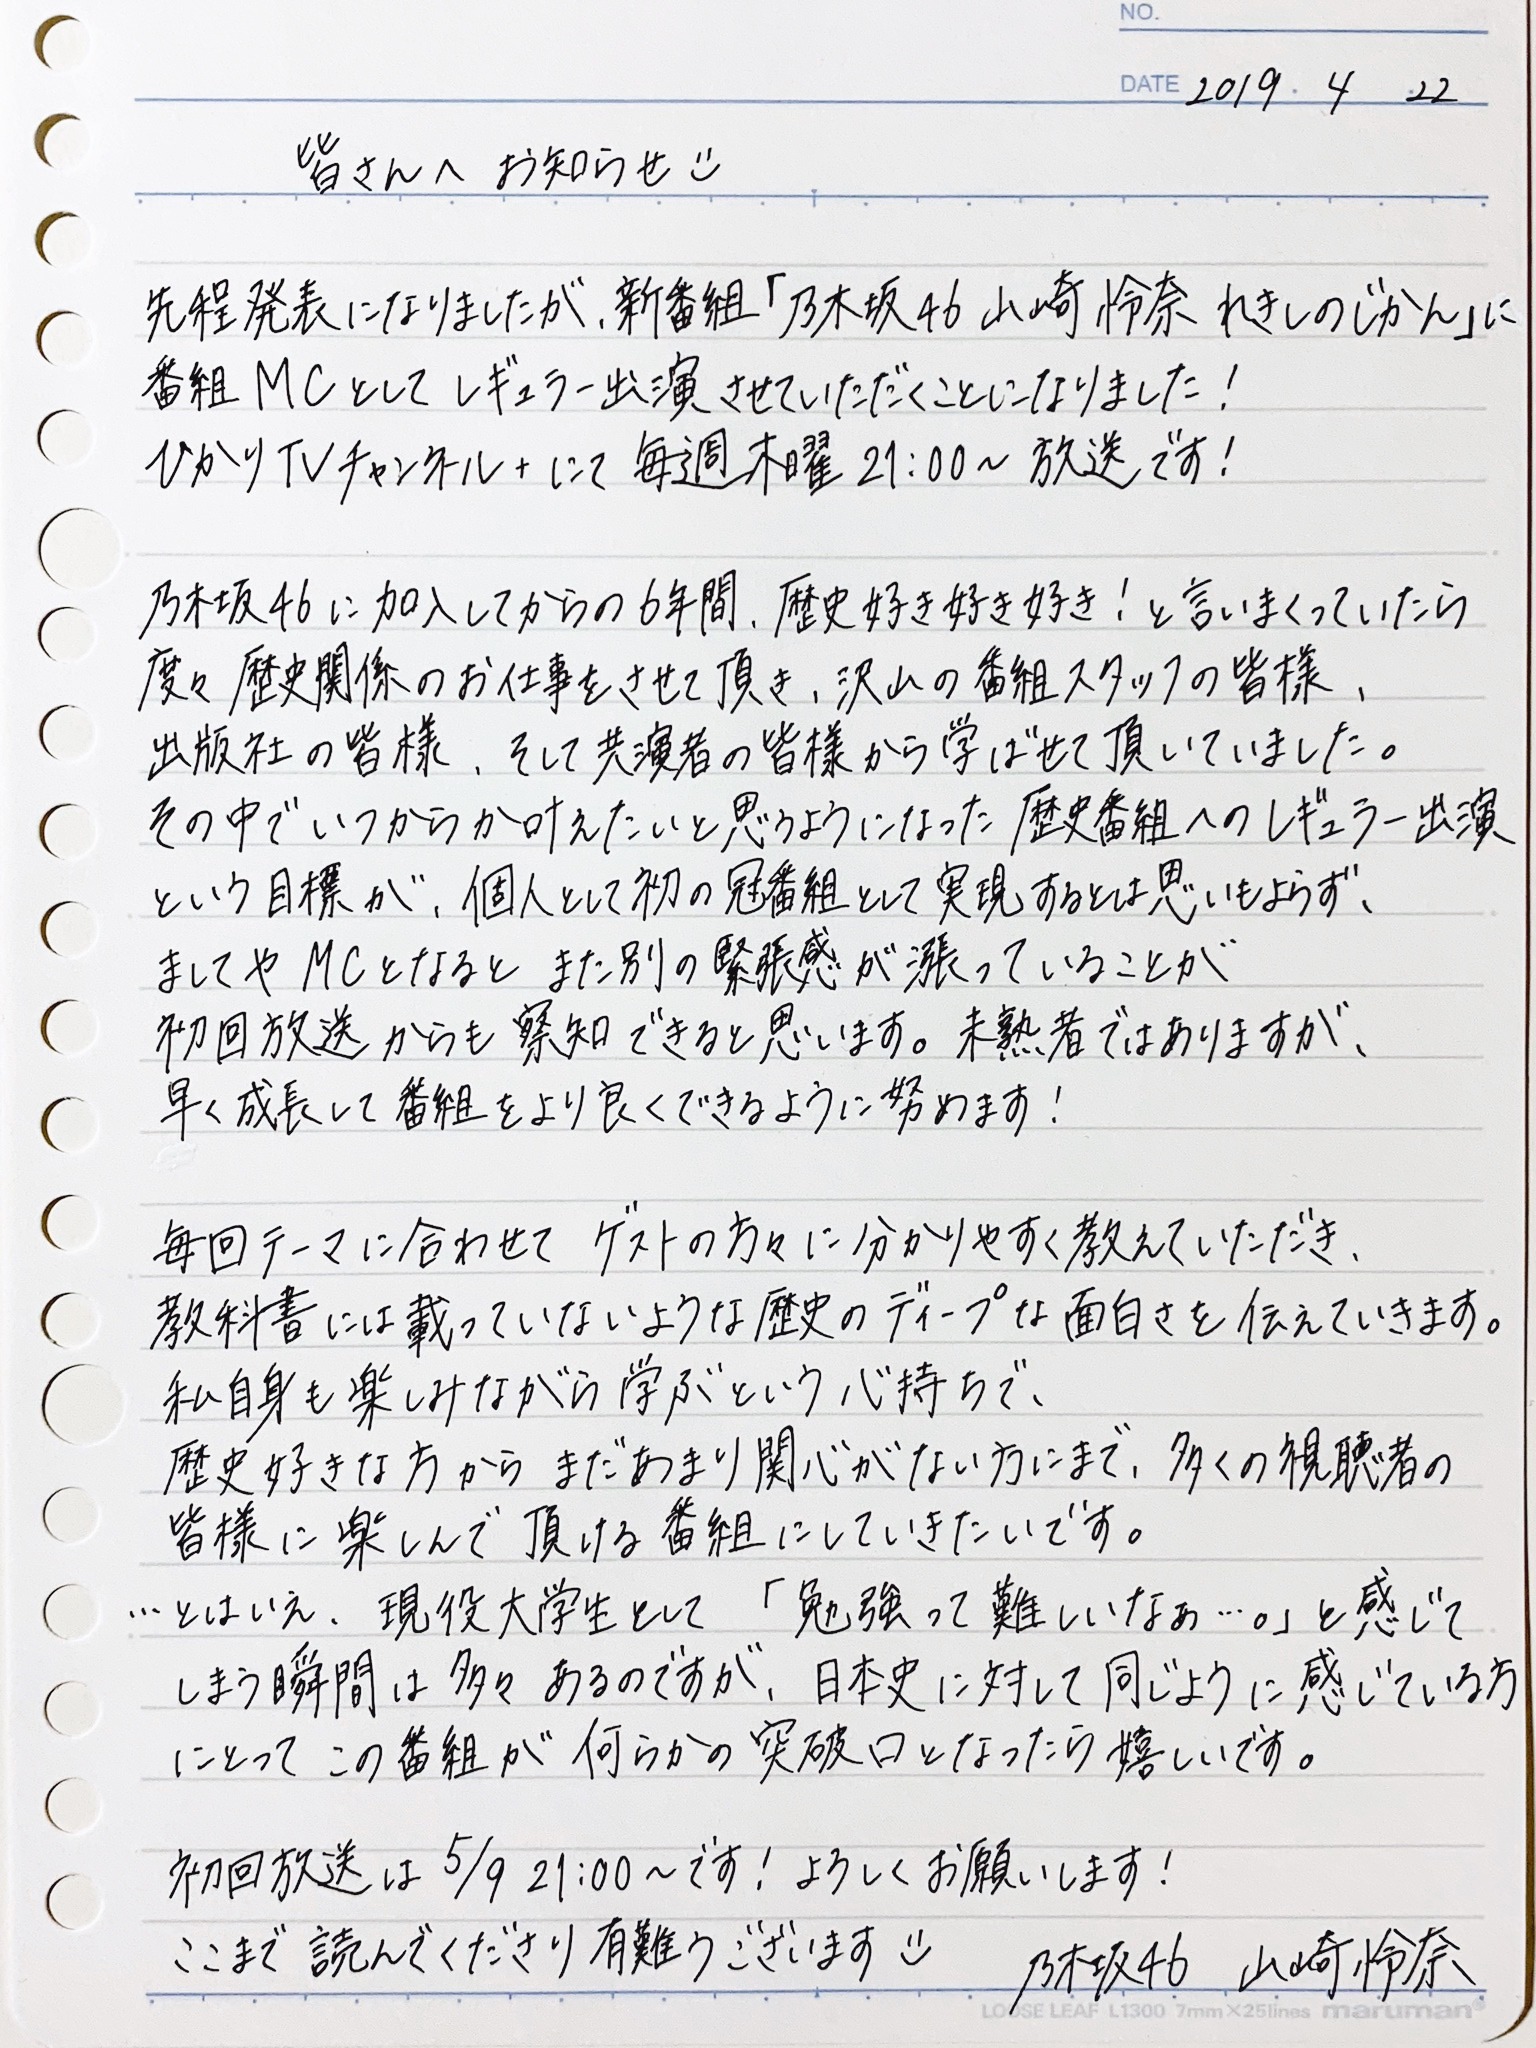 NO.
DATE 2019. 4 . 22
皆さんへ お知らせ
先程発表になりましたが、新番組「乃木坂46 山崎怜奈 れきしのじかん」に
番組MCとしてレギュラー出演させていただくことになりました!
ひかりTVチャンネル+にて毎週木曜21:00~放送です!
乃木坂46に加入してからの6年間、歴史好き好き好き!と言いまくっていたら
度々歴史関係のお仕事をさせて頂き、沢山の番組スタッフの皆様、
出版社の皆様、そして共演者の皆様から学ばせて頂いていました。
その中でいつからか叶えたいと思うようになった歴史番組へのレギュラー出演
という目標が、個人として初の冠番組として実現するとは思いもよらず、
ましてやMCとなるとまた別の緊張感が漲っていることが
初回放送からも察知できると思います。未熟者ではありますが、
早く成長して番組をより良くできるように努めます!
毎回テーマに合わせてゲストの方々に分かりやすく教えていただき、
教科書には載っていないような歴史のディープな面白さを伝えていきます。
私自身も楽しみながら学ぶという心持ちで、
歴史好きな方からまだあまり関心がない方にまで、多くの視聴者の
皆様に楽しんで頂ける番組にしていきたいです。
…とはいえ、現役大学生として「勉強って難しいなぁ…。」と感じて
しまう瞬間は多々あるのですが、日本史に対して同じように感じている方
にとってこの番組が何らかの突破口となったら嬉しいです。
初回放送は5/9 21:00~です!よろしくお願いします!
ここまで読んでくださり有難うございます
乃木坂46 山崎怜奈
LOOSE LEAF L1300 7mm×25lines maruman®